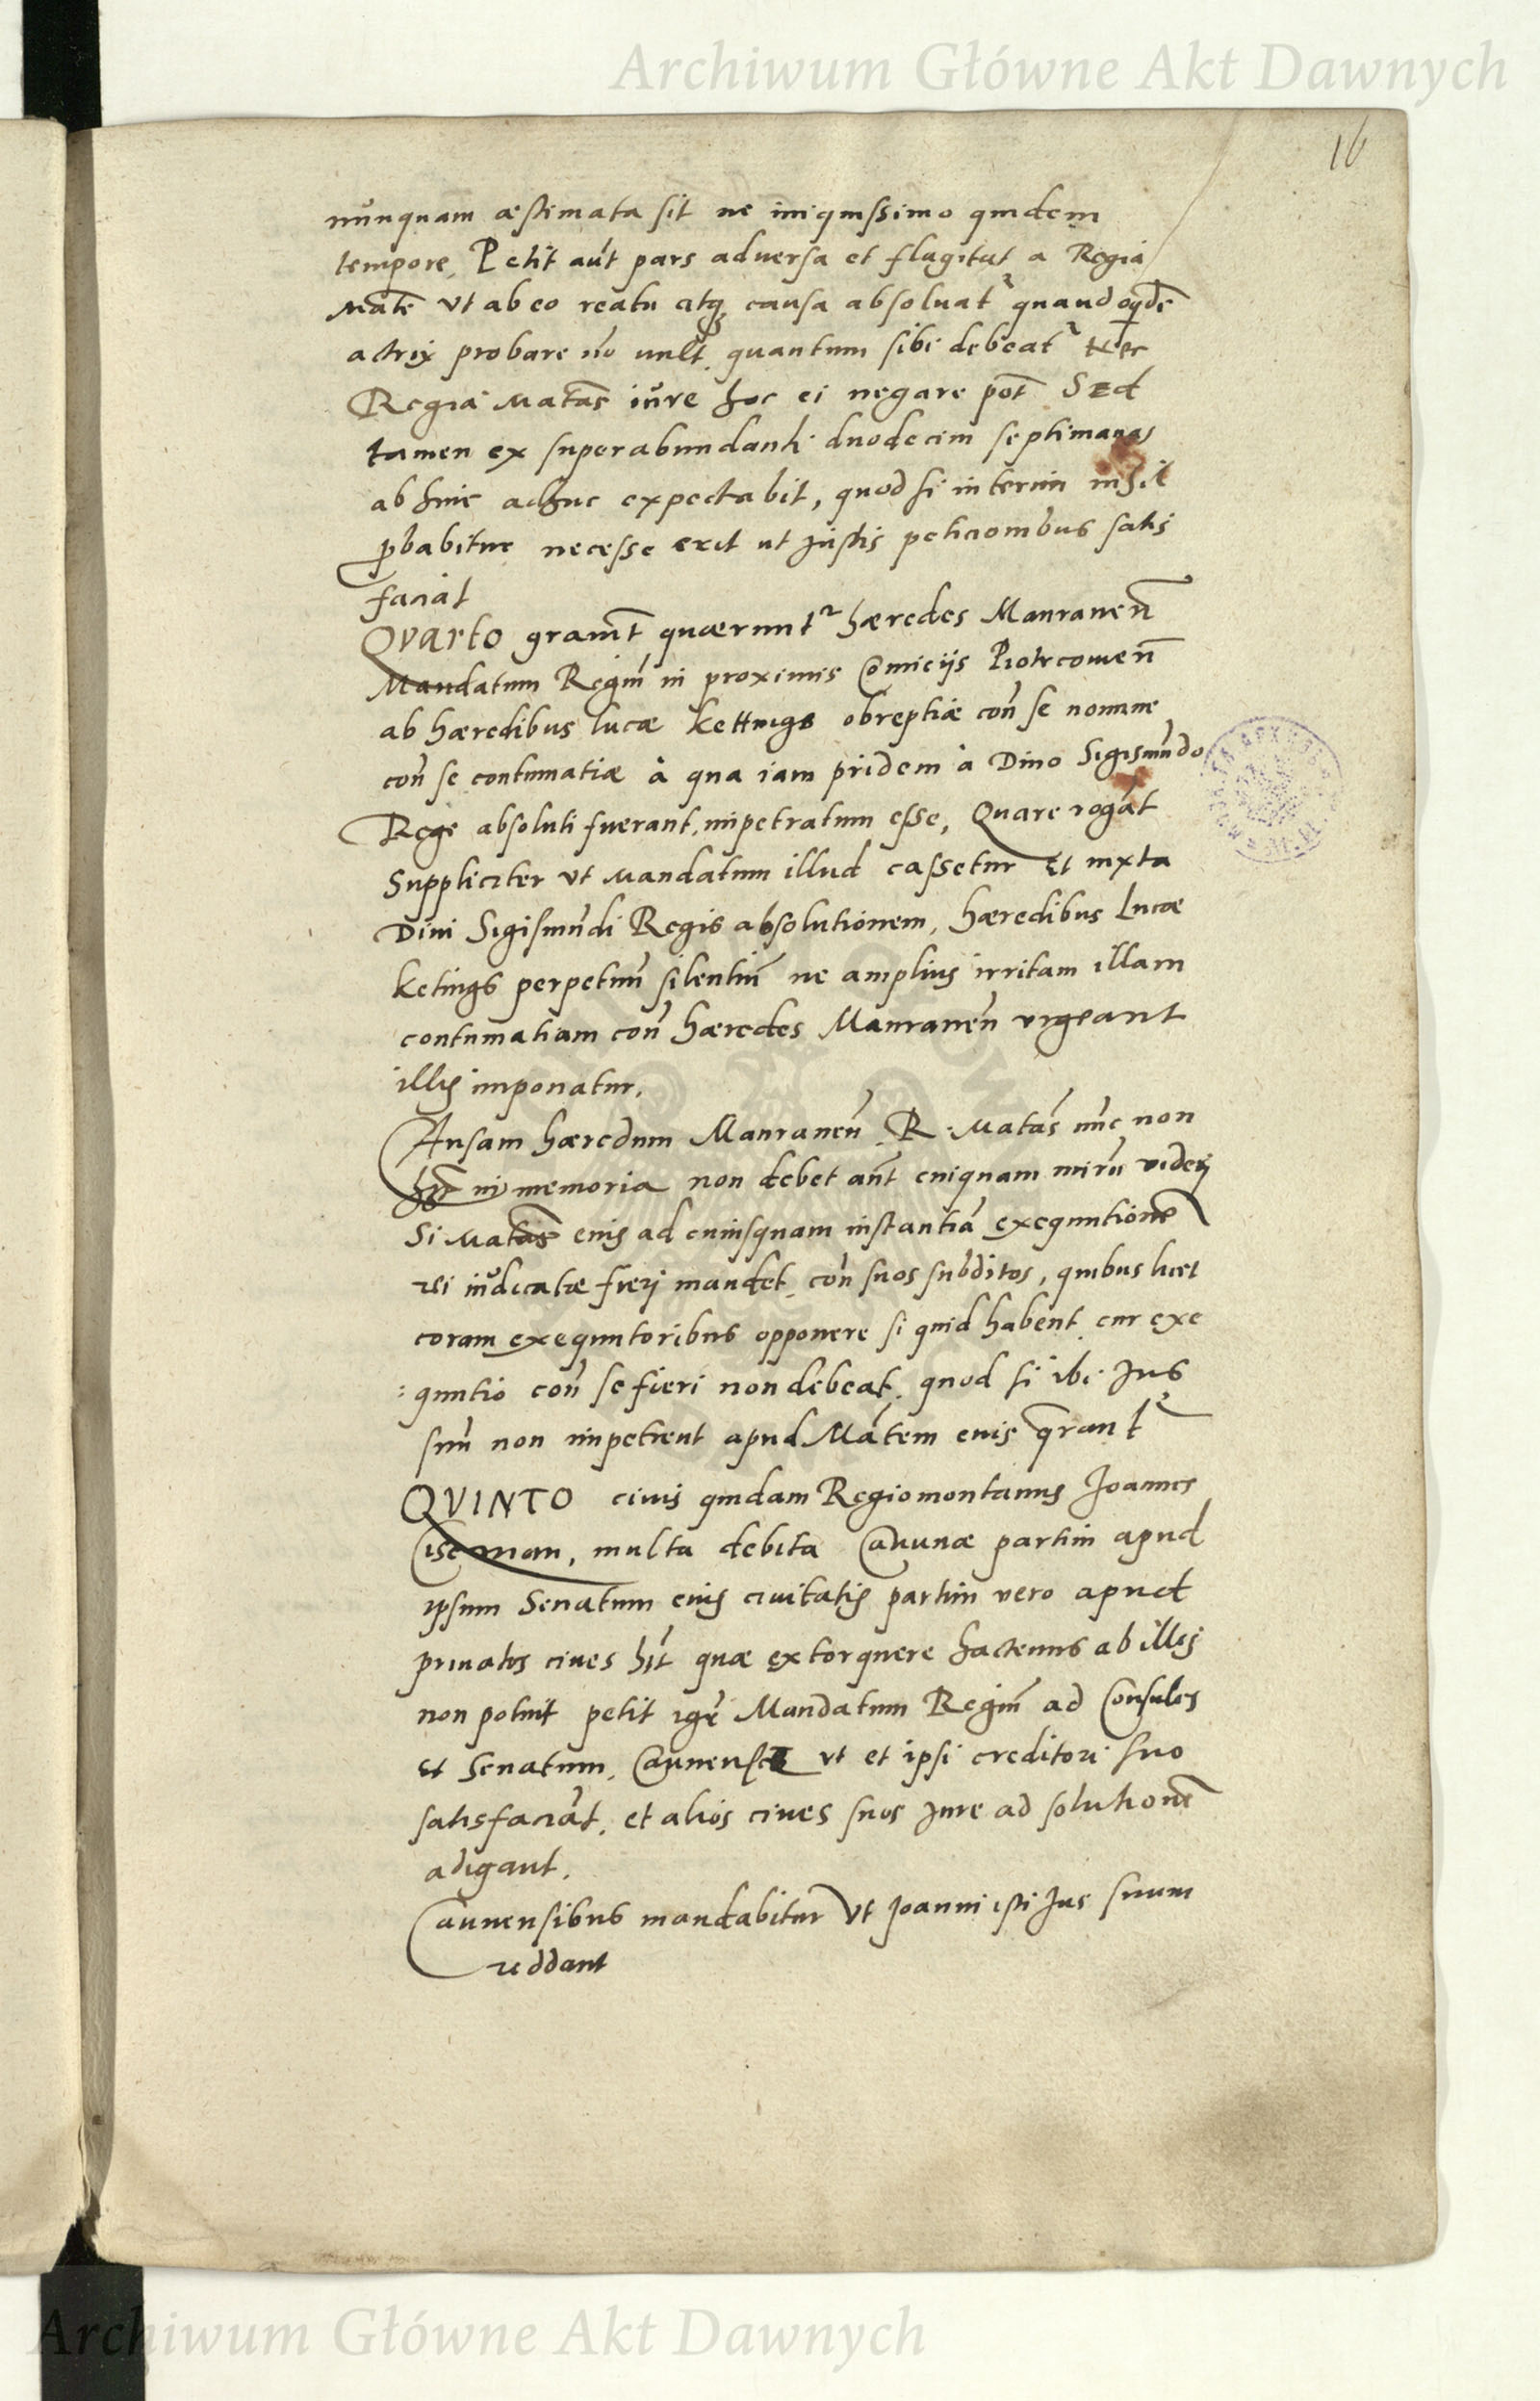 Archiwum Główne Akt Dawnych
16
nunquam æstimata sit ne iniquissimo quidem
tempore, Petit aut pars adversa et flagitat a Regia
Mate vt ab eo reatu atq causa absoluat quandoqde
actrix probare no uult quantum sibi debeat Nec
Regia Matas iure hoc ei negare pot Sed
tamen ex superabundanti duodecim septimanas
ab hinc adhuc expectabit, quod si interim nihil
pbabitur necesse erit ut Justis peticionibus satis
faciat
QVARTO grauit quærunt hæredes Mauranen
Mandatum Regiu in proximis Comicijs Piotrcouien
ab hæredibus Lucæ Kettings obreptiæ con se nomine
con se contumatiæ à qua iam pridem à Diuo Sigismundo
Rege absoluti fuerant, impetratum esse, Quare rogat
Suppliciter vt Mandatum illud cassetur Et iuxta
Diui Sigismundi Regis absolutionem, hæredibus Lucæ
Ketings perpetuu silentiu ne amplius irritam illam
contumatiam con hæredes Mauranen vrgeant
illis imponatur.
Ansam hæredum Mauranen R. Matas nuc non
in memoria non debet aut cuiquam miru videri
Si Matas eius ad cuiusquam instantia exequutione
rei iudicatæ fieri mandet, con suos subditos, quibus licet
coram exequutoribus opponere si quid habent cur exe
: quutio con se fieri non debeat, quod si ibi Jus
suu non impetrent apud Matem eius qrant
QVINTO ciuis quidam Regiomontanus Joannes
Ciseman, multa debita Caunæ partim apud
ipsum Senatum eius ciuitatis partim vero apud
priuatos ciues hit quæ extorquere hactenus ab illis
non potuit petit igr Mandatum Regiu ad Consules
Et Senatum, Caunense vt et ipsi creditori suo
satisfaciat, et alios ciues suos Jure ad solutione
adigant.
Caunensibus mandabitur Vt Joanni isti Jus suum
reddant
Archiwum Główne Akt Dawnych